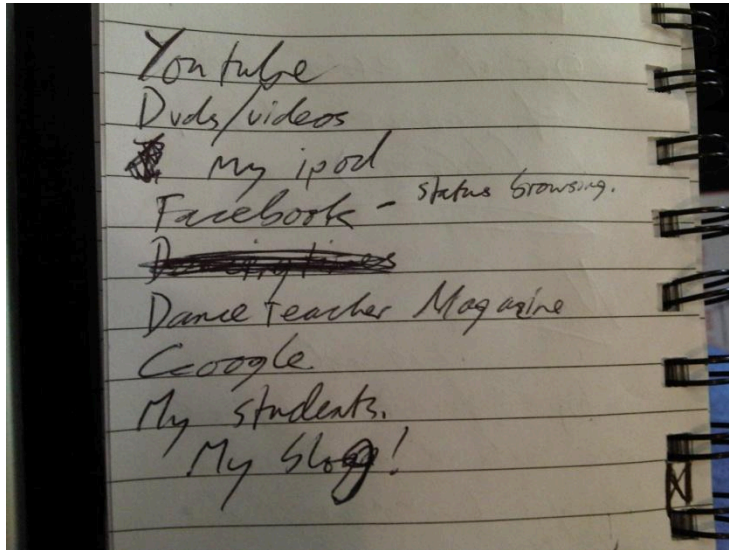 Youtube
Dvds/videos
My ipod
Facebook - status browsing.
Dance Teacher Magazine
Google
My students.
My blog!